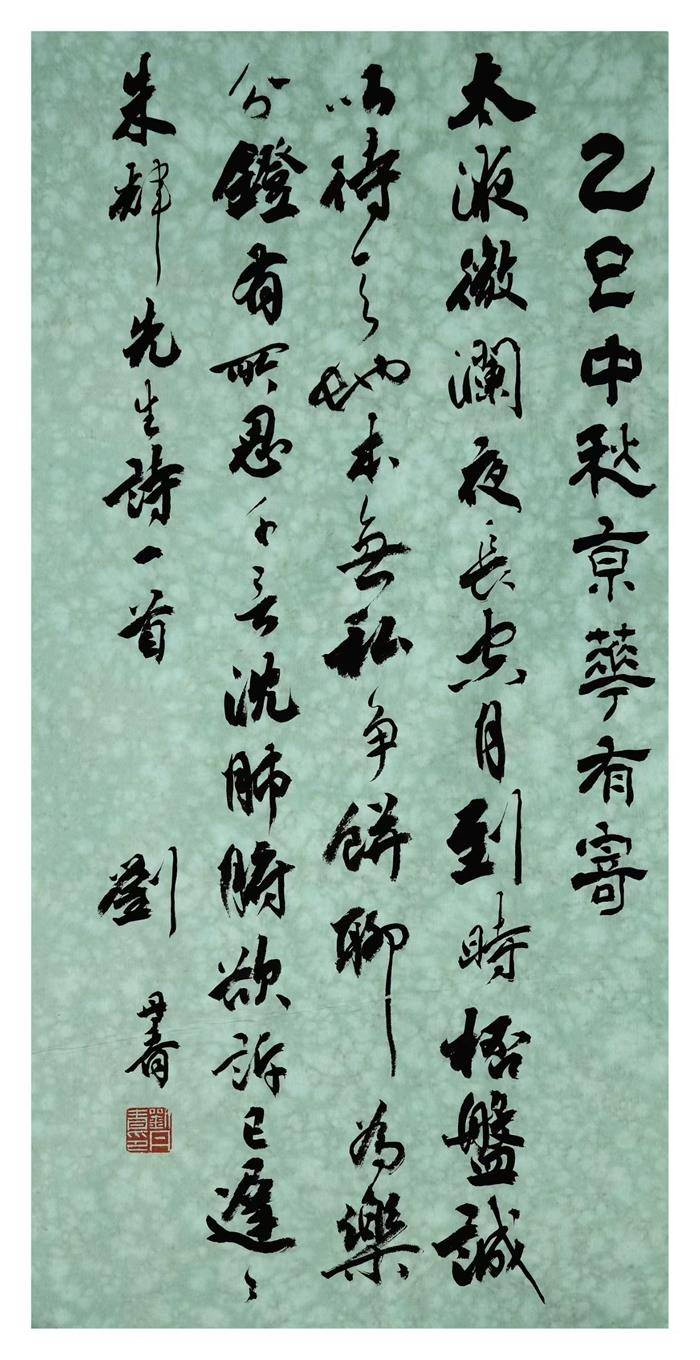 乙巳中秋京華有寄
太液微瀾夜長安月到時桮盤誠
以待天地本無私爭餅聊為樂
分鐙有所思千言沈肺腑欲訴已遲〻
朱 先生詩一首 劉丹青
劉丹青印